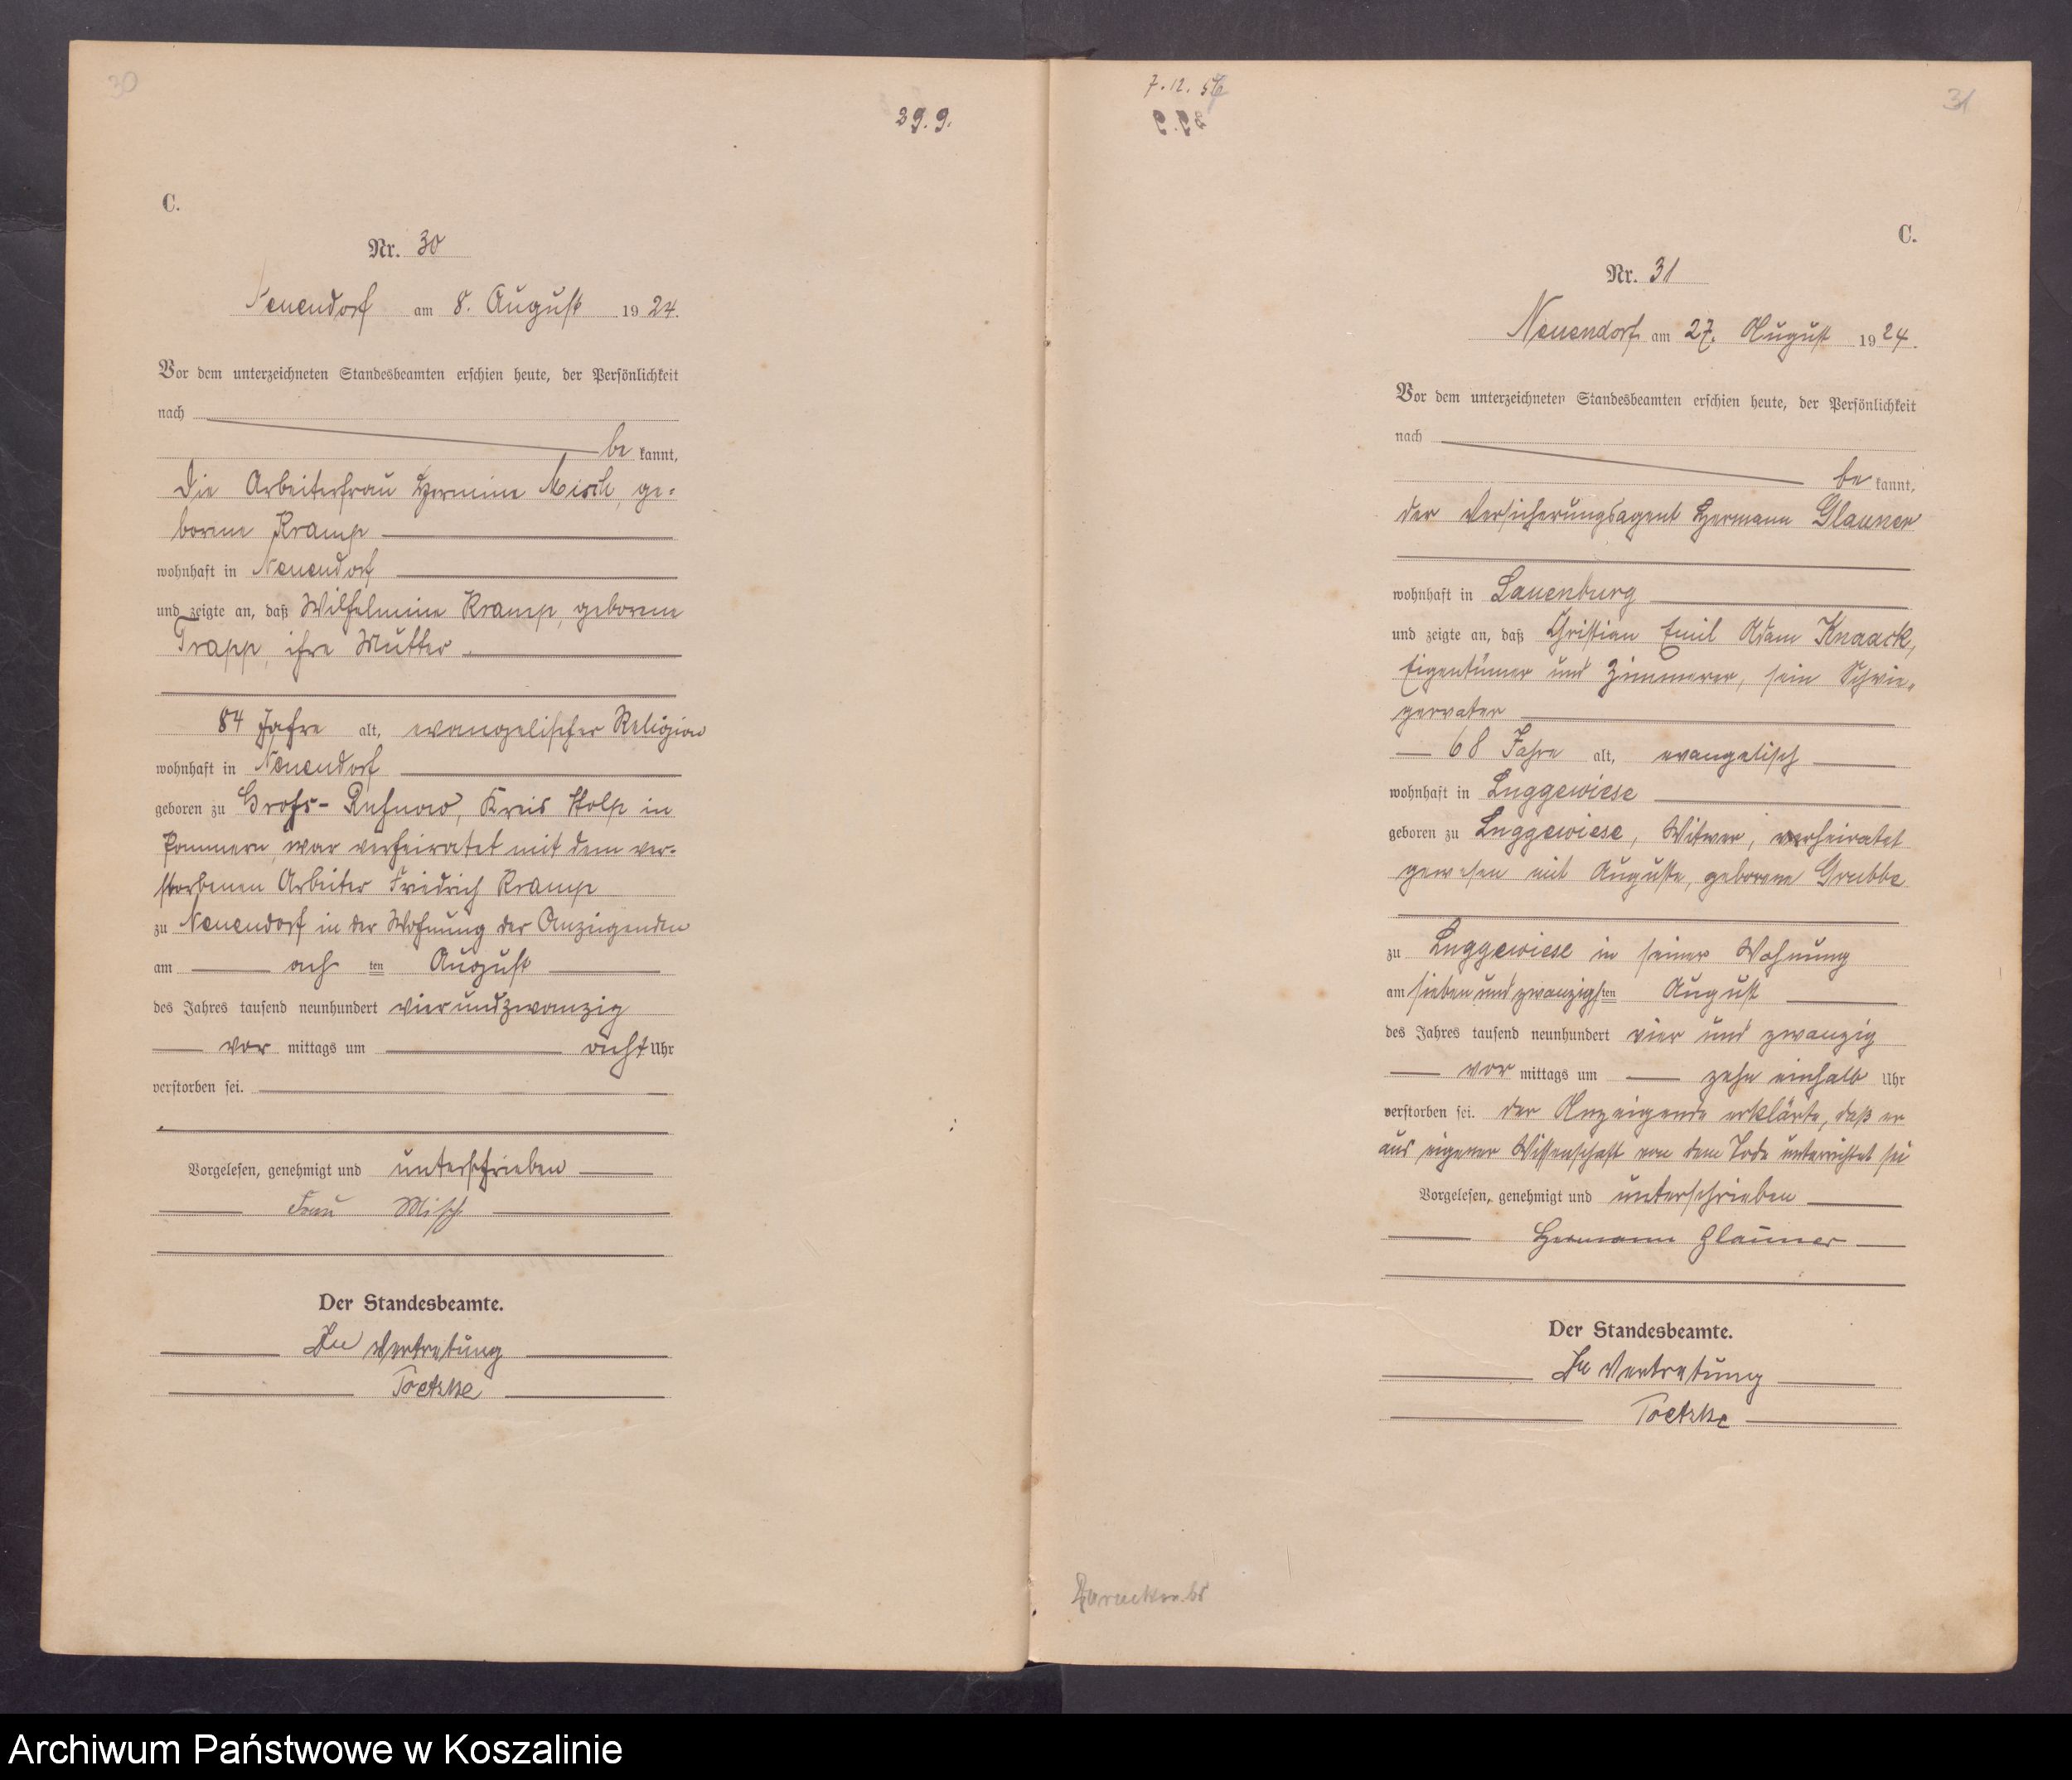 30
29.9.
C.
Nr. 30
Neuendorf am 8. August 1924.
Vor dem unterzeichneten Standesbeamten erschien heute, der Persönlichkeit
nach
be kannt,
die Arbeiterfrau Hermine Misch, ge=
borene Kramp
wohnhaft in Neuendorf
und zeigte an, daß Wilhelmine Kramp, geborene
Trapp, ihre Mutter
84 Jahre alt, evangelischer Religion
wohnhaft in Neuendorf
geboren zu Groß-, Kreis Stolp in
Pommern, war verheiratet mit dem ver=
storbenen Arbeiter Friedrich Kramp
zu Neuendorf in der Wohnung der Anzeigenden
am ach ten August
des Jahres tausend neunhundert vierundzwanzig
vor mittags um acht Uhr
verstorben sei.
Vorgelesen, genehmigt und unterschrieben
Frau Misch
Der Standesbeamte.
In Vertretung
Toetzke
7.12.
31
C.
Nr. 31
Neuendorf am 27. August 1924.
Vor dem unterzeichneten Standesbeamten erschien heute, der Persönlichkeit
nach
be kannt,
der Versicherungsagent Hermann Glauner
wohnhaft in Lauenburg
und zeigte an, daß Christian Emil Adam Knaack,
Eigentümer und Zimmerer, sein Schwie=
gervater
68 Jahre alt, evangelisch
wohnhaft in Luggewiese
geboren zu Luggewiese, Witwer, verheiratet
gewesen mit Auguste, geborene Grubbe
zu Luggewiese in seiner Wohnung
am sieben und zwanzigsten August
des Jahres tausend neunhundert vier und zwanzig
vor mittags um zehn einhalb Uhr
verstorben sei. Der Anzeigende erklärte, daß er
aus eigener Wissenschaft von dem Tode unterrichtet sei
Vorgelesen, genehmigt und unterschrieben
Hermann Glauner
Der Standesbeamte.
In Vertretung
Toetzke
Archiwum Państwowe w Koszalinie